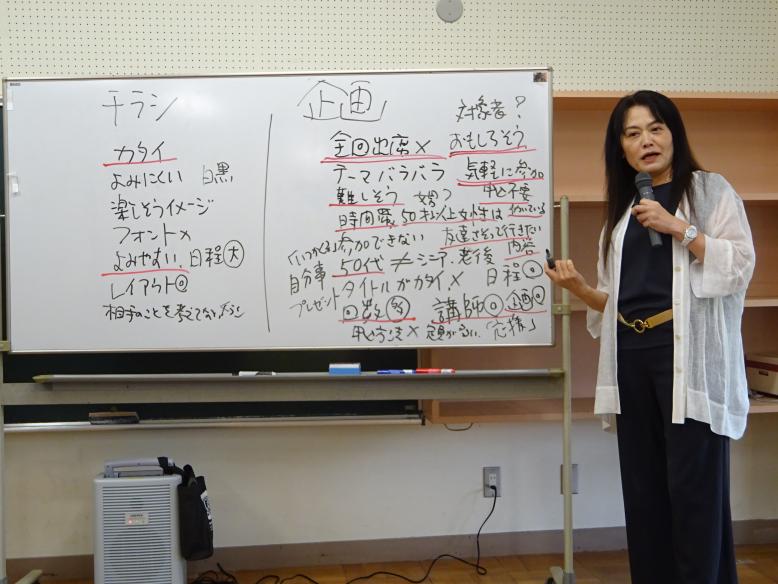 チラシ
カタイ
よみにくい 白黒
楽しそうイメージ
フォント×
よみやすい 日程 大
レイアウト◎
相手のことを考えてないチラシ
企画
対象者?
全回出席× おもしろそう
テーマバラバラ 気軽に参加
難しそう 申込不要
時間帯 50才以上女性は
参加できない 友達さそって行きたい
自分事 50代≠シニア、老後 内容
プレゼント タイトルがカタイ× 日程
回数 多 講師◎ 企画◎
申込方法× 「応援」